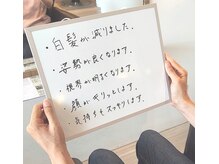 ・白髪が減りました。
・姿勢が良くなります。
・視界が明るくなります。
・顔がキリッとします。
・気持ちもスッキリします。